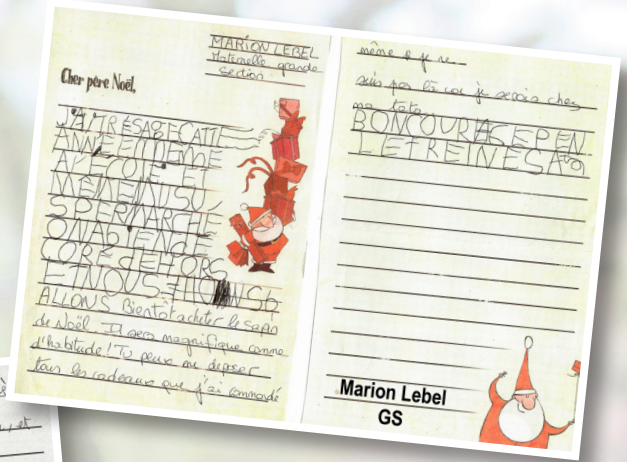 MARION LEBEL
Maternelle grande
section
Cher père Noël,
J'AI TRESAGECATTE
ANNEE IDEME
A L'ECOLE ET
MEMENAUSU
SPERMARCHE
ONABIENDE
CORÉ dEHORS
ET NOUS
ALLONS Bientôt acheter le sapin
de Noël. Il sera magnifique comme
d'habitude! Tu peux me déposer
tous les cadeaux que j'ai commandé
même si je ne
suis pas là car je serais chez
ma tata
BONCOURACEPEN
LETREINESA
Marion Lebel
GS
et